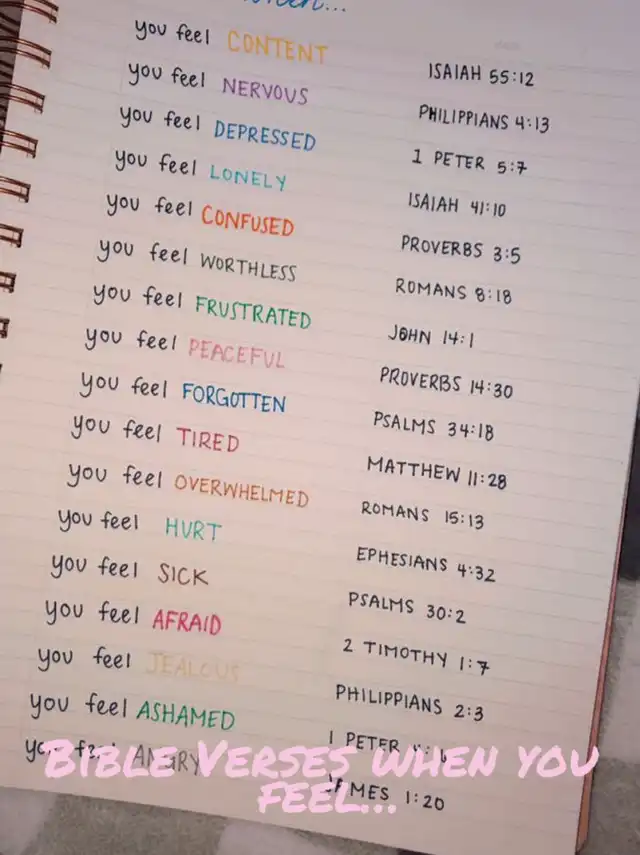 when...
you feel CONTENT ISAIAH 55:12
you feel NERVOUS PHILIPPIANS 4:13
you feel DEPRESSED 1 PETER 5:7
you feel LONELY ISAIAH 41:10
you feel CONFUSED PROVERBS 3:5
you feel WORTHLESS ROMANS 8:18
you feel FRUSTRATED JOHN 14:1
you feel PEACEFUL PROVERBS 14:30
you feel FORGOTTEN PSALMS 34:18
you feel TIRED MATTHEW 11:28
you feel OVERWHELMED ROMANS 15:13
you feel HURT EPHESIANS 4:32
you feel SICK PSALMS 30:2
you feel AFRAID 2 TIMOTHY 1:7
you feel JEALOUS PHILIPPIANS 2:3
you feel ASHAMED 1 PETER
you feel ANGRY JAMES 1:20
Bible Verses when you
feel...